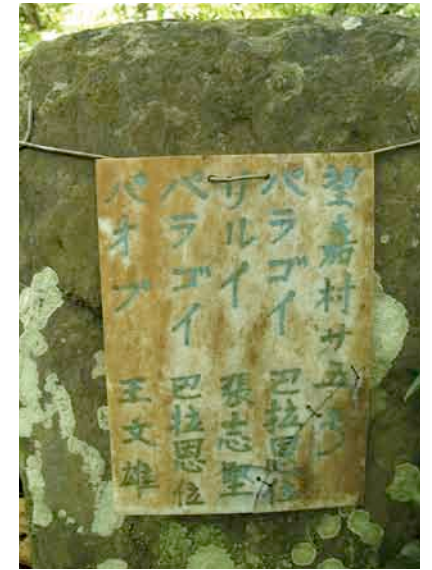 望嘉村サ五
パラゴイ 巴拉恩位
サルイ 張志堅
パラゴイ 巴拉恩位
パオブ 王文雄